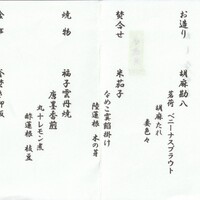 お造り　胡麻勘八
茗荷　ベニーナスプラウト
胡麻たれ
妻色々
焚合せ　米茄子
なめこ雲餡掛け
陸蓮根　木の芽
焼物　福子雲丹焼
唐墨香煎
丸十レモン煮
酢蓮根　枝豆